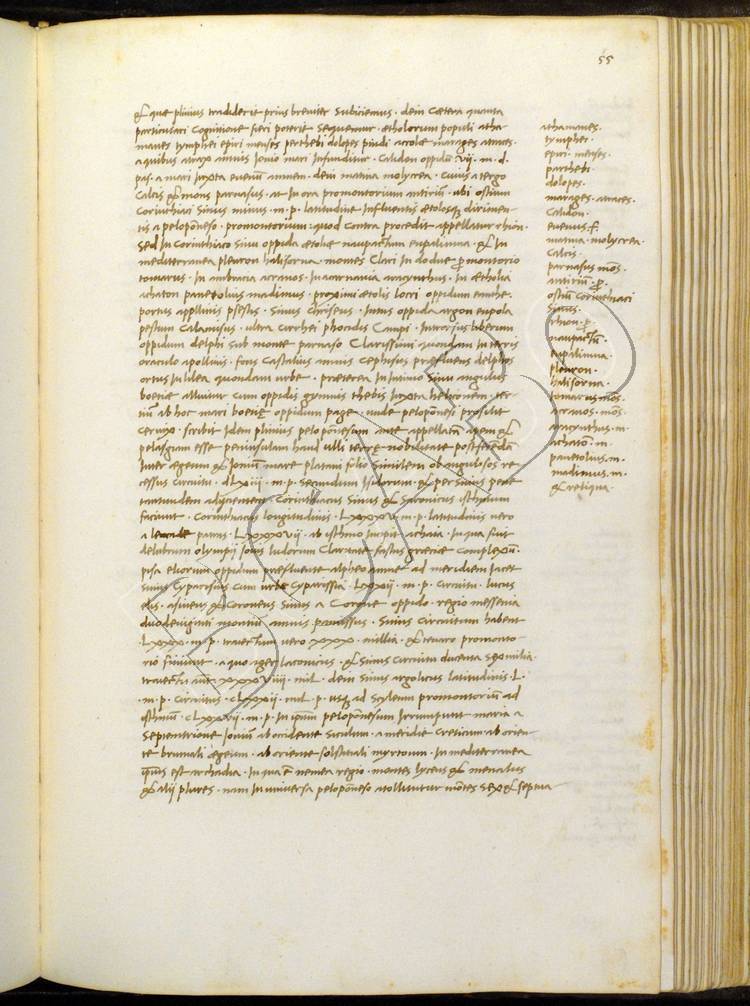 55
& que plinius tradiderit prius breviter subiciemus · dein cætera quanta
particulari cognitione fieri poterit sequemur · ætholorum populi atha
manes tymphei epiri menses perthebi dolopes pindi acolde marages atraces ·
a quibus atrax amnis Ionio mari Infunditur · Calidon oppidum · VII · m · d ·
pas · a mari Iuxta evenum amnem · dein matina molycrea · cuius a tergo
Calcis & mons parnasus · at In ora promontorium antirium · ubi ostium
Corinthiaci Sinus minus · m · p · latitudine Influentis ætolosq dirimen-
tis a peloponeso · promontorium quod contra procedit appellatur rhion ·
Sed In Corinthiaco sinu oppida ætoliæ naupactum eupalimna · & In
mediterranea pleuron halisorna · montes Clari In dodone promontorio
tomarus · In ambracia acranos · In acarnania aracynthus · In ætholia
achaton panetolius madimus · proximi ætolis locri oppidum
portus appllinis psestis · Sinus Chriseus · Intus oppida argon eupola
pestum Calamisus · ultra cirrhei phocidis Campi · Introrsus liberum
oppidum delphi sub monte parnaso Clarissimi quondam In terris
oraculo apollinis · fons Castalius amnis Cephisus præfluens delphos
ortus In lilea quondam urbe · præterea In Intimo sinu angulus
boetiæ alluitur cum oppidis thebis Iuxta heliconem · ter-
tium ab hoc mari boetiæ oppidum page · unde peloponesi prosilit
Cervix · scribit Idem plinius peloponesum ante appellatam apem &
pelasgiam esse peninsulam haud ulli terre nobilitate postferendam
Inter ægeum & Ionium mare platani folio similem ob angulosos re
cessus circuitu · dLxiij · m · p · secundum Isidorum · & per Sinus pene
tantundem adijcientem · Corinthiacus Sinus & Saronicus isthmum
faciunt · Corinthiacus longitudinis · LXXXV · m · p · latitudinis vero
a leucade patras · LXXXVij · ab isthmo Incipit achaia · In qua fuit
delubrum olympij Iovis ludorum Claritate fastus græciæ complexum ·
pisa eliorum oppidum præfluente alpheo amne ad meridiem Iacet
sinus Cyparisius cum urbe Cyparissia · LXXij · m · p · circuitu · lucus
& Coroneus Sinus a Corone oppido · regio messenia
duodeviginti montium amnis pamissus · Sinus circuitum habent
· LXXX · m · p · traiectum vero XXXX · millia · & tenaro promonto-
rio finiunt · a quo ager laconicus · & sinus circuitu ducenta sex milia
traiectu aut XXXViiii · mil · dein sinus argolicus latitudinis · L ·
· m · p · circuitus · CLXXij · mil · p · usq ad scyleum promontorium ad
isthmum · CLXXVij · m · p · In quem peloponesum Irrumpunt maria a
Septentrione Ionium ab occidente siculum · a meridie Creticum ab orien-
te brumali ægeum · ab oriente solstitiali myrtoum · In mediterranea
quius est archadia · In qua ē nemea regio · montes lyceus & menalus
& alij plures · nam In universa peloponeso attollitur mōtes sex & septua
athamanes ·
tymphei ·
epiri · menses ·
perthebi ·
dolopes ·
marages · atraces ·
Calidon ·
evenus · f ·
matina · molycrea ·
Calcis ·
parnasus mōs ·
antirium · p ·
ostiū Corinthiaci
sinus ·
rhion · p ·
naupactū ·
eupalimna ·
pleuron ·
halisorna ·
tomarus mōs ·
acranos · mōs ·
aracynthus · m ·
achaton · m ·
panetolius · m ·
madimus · m ·
& reliqua ·